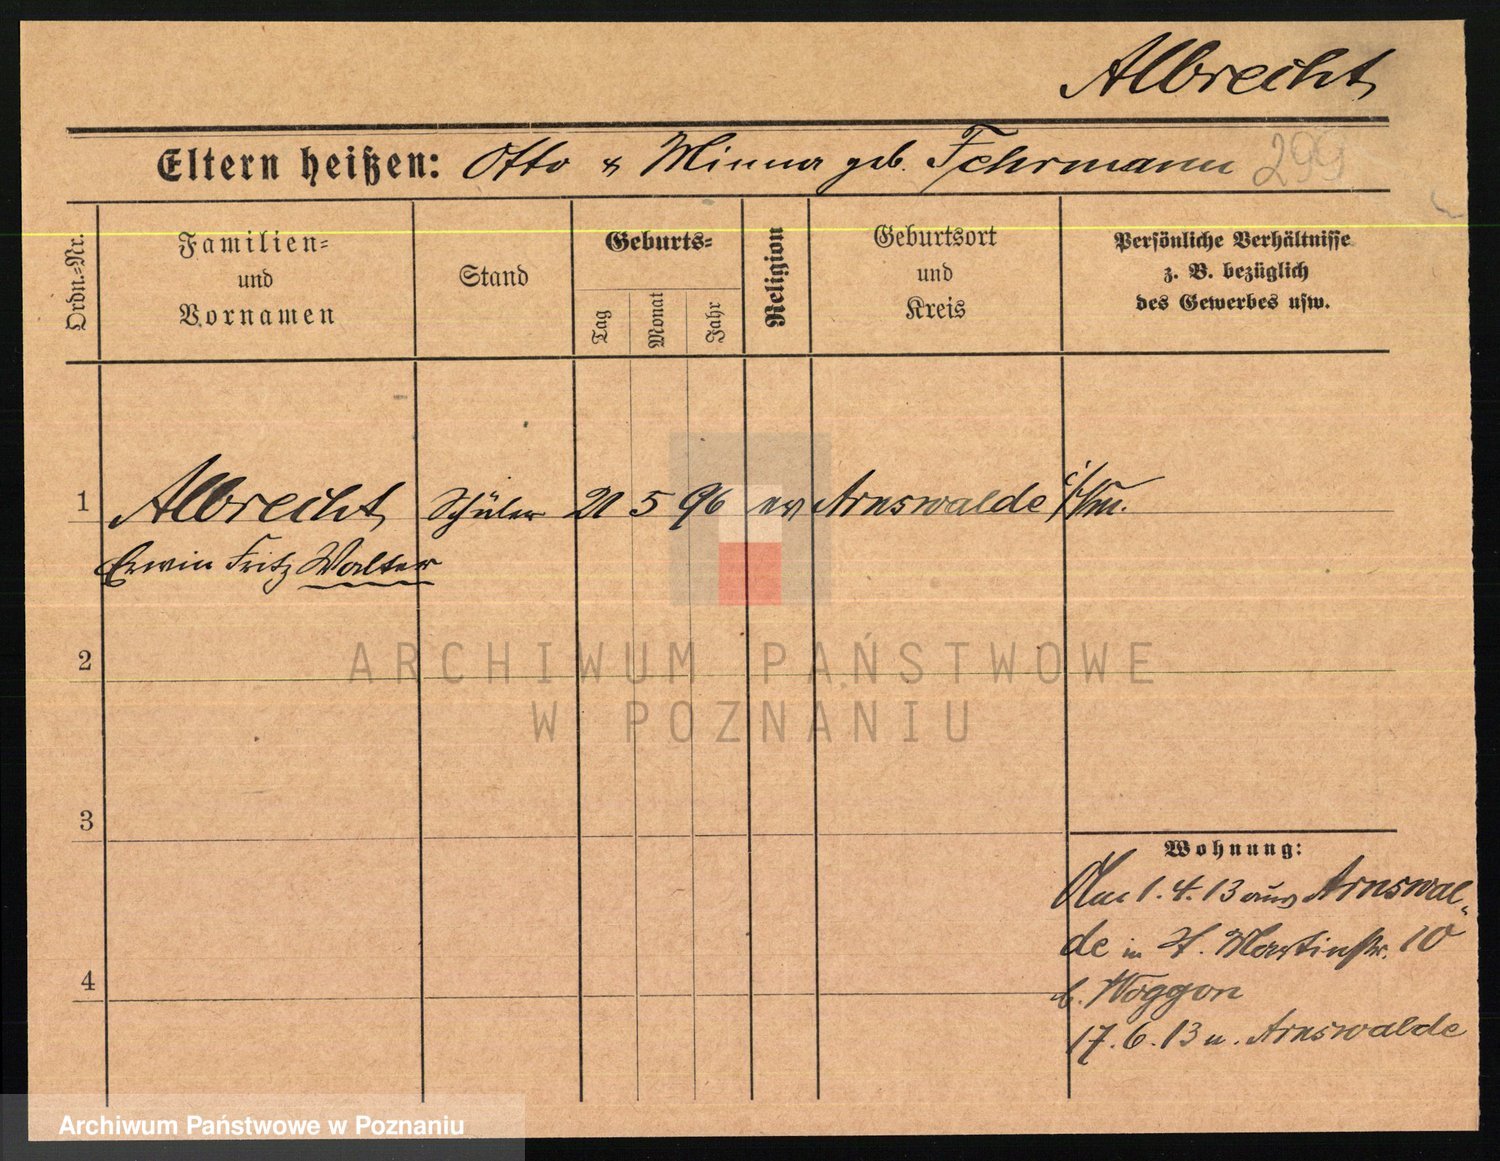 Albrecht
Eltern heißen: Otto & Minna geb. Fehrmann 299
Ordn.-Nr.
Familien-
und
Vornamen
Stand
Geburts-
Tag
Monat
Jahr
Religion
Geburtsort
und
Kreis
Persönliche Verhältnisse
z. B. bezüglich
des Gewerbes usw.
1 Albrecht Schüler 21 5 96 ev Arnswalde
Erwin Fritz Walter
2
ARCHIWUM PAŃSTWOWE
W POZNANIU
3
Wohnung:
Am 1.4.13 aus Arnswal-
de in St. Martinstr. 10
b. Woggon
4
17.6.13 n. Arnswalde
Archiwum Państwowe w Poznaniu